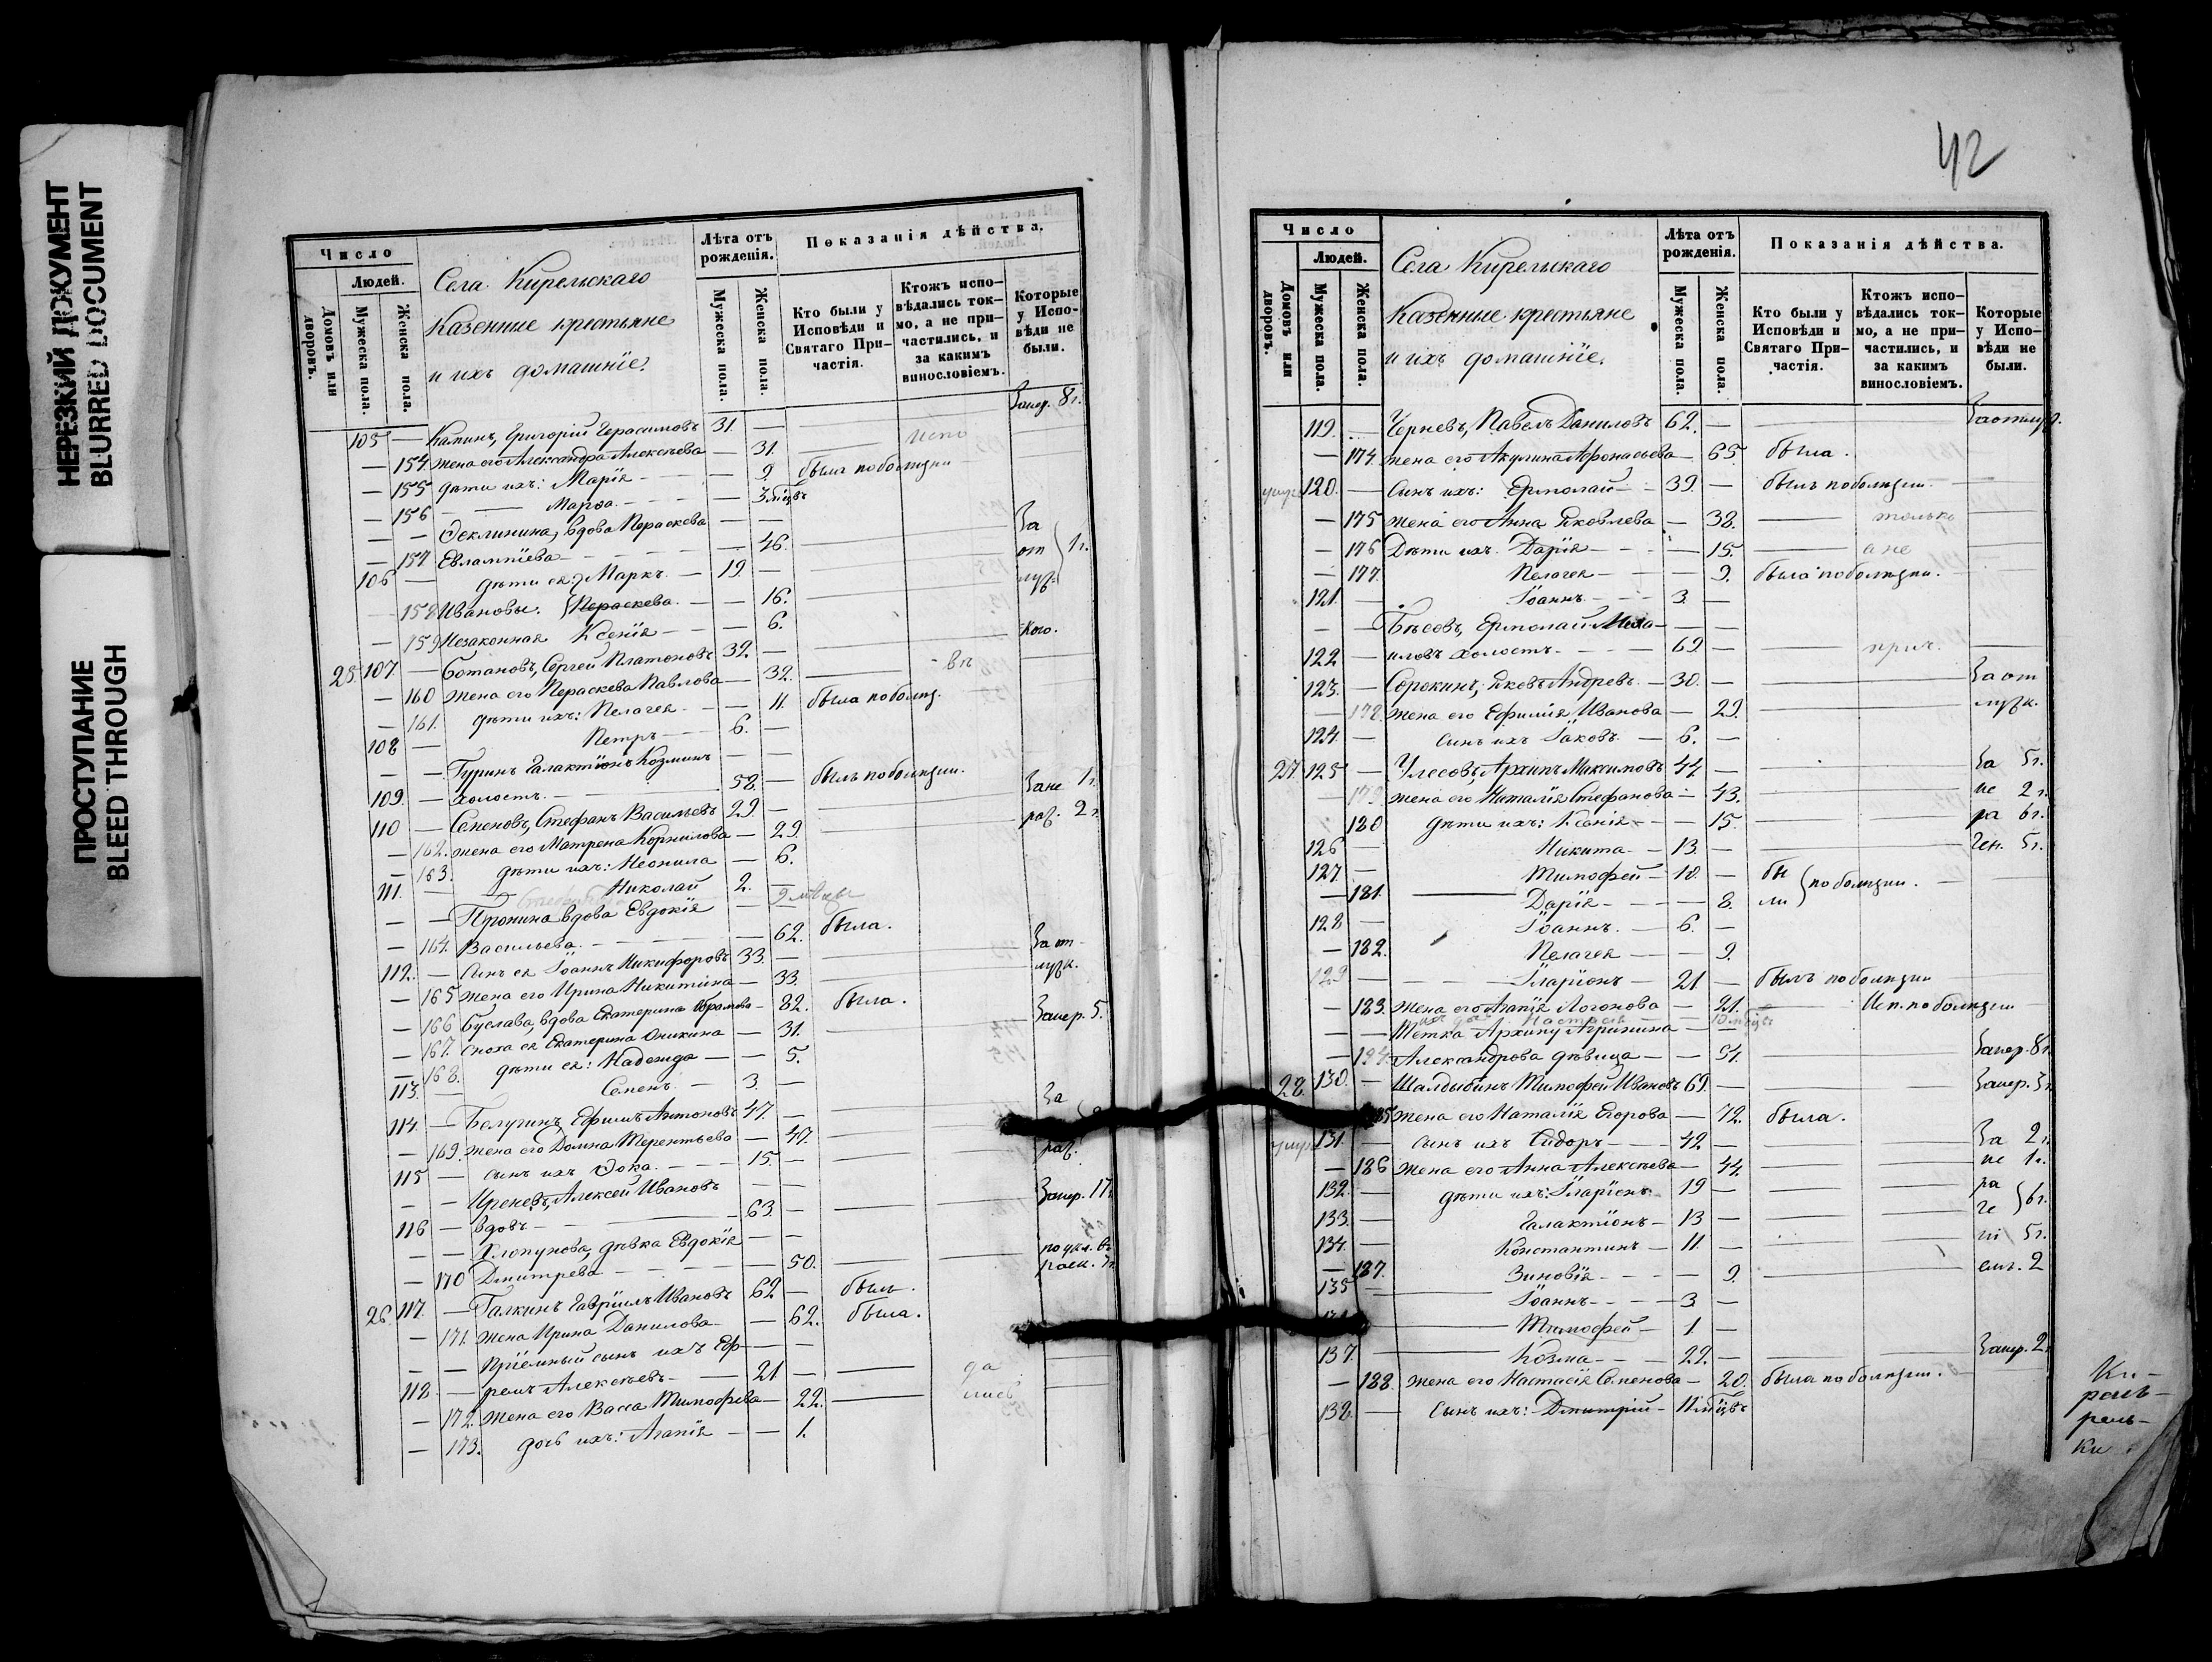 НЕРЕЗКИЙ ДОКУМЕНТ
BLURRED DOCUMENT
ПРОСТУПАНИЕ
BLEED THROUGH
Число
Людей.
Домовъ или дворовъ.
Мужеска пола.
Женска пола.
Села Кирельскаго
Казенные крестьяне
и ихъ домашніе.
Лѣта отъ рожденія.
Мужеска пола.
Женска пола.
Показанія дѣйства.
Кто были у Исповѣди и Святаго Причастія.
Ктожъ исповѣдались токмо, а не причастились, и за какимъ винословіемъ.
Которые у Исповѣди не были.
105 — Каминъ, Григорій Герасимовъ 31. — — Занер. 8 г.
— 154. жена его Александра Алексѣева — 31. — испо
— 155 дѣти ихъ: Марія — 9. была по болѣзни
— 156 — Марѳа — 3 мѣцъ
— — Ѳеклинина, вдова Пераскева — —
— 157 Евлампіева — 46. — За
106 — дѣти ея: Маркъ. — 19. — от 1 г.
— 158 Ивановы. Пераскева. — 16. луч
— 159 Незаконная Ксенія — 6.
25 107. — Ботановъ, Сергей Платоновъ 32. — — Кого.
— 160 жена его Пераскева Павлова — 32. — вѣ
— 161. дѣти ихъ: Пелагея — 11. была по болѣз.
108 — Петръ 6. —
— — Гуринъ Галактіонъ Козминъ — —
109. — холостъ. 58. — былъ по болѣзни.
110 — Семеновъ, Стефанъ Васильевъ 29. — — Зане 1 г.
— 162. жена его Матрена Корнилова — 29. — раз. 2 г.
— 163. дѣти ихъ: Неонила — 6.
111. — Николай 2. —
9 мѣсцы
— — Пронина вдова Евдокія — —
— 164. Васильева. — 62. была.
112. — сынъ ея Іоаннъ Никифоровъ 33. — — За от-
— 165 жена его Ирина Никитіна — 33. — луч.
— 166 Буслава, вдова Екатерина Абрамова — 82. была.
— 167. сноха ея Екатерина Оникина — 31. — Занер. 5.
— 168. дѣти ея: Надежда — 5.
113. — Семенъ. — 3. —
114. — Белугинъ, Ефимъ Антоновъ 47. — — За
— 169. жена его Домна Терентьева — 47. —
115 — сынъ ихъ Ѳока. — 15. — раз.
— — Иреневъ, Алексей Ивановъ — —
116 — вдовъ. — 63. — — Занер. 17 г.
— — Хлопунова, дѣвка Евдокія — —
— 170 Дмитрева. — 50. —
26. 117. — Галкинъ Гавріилъ Ивановъ 62 — былъ.
— 171. жена Ирина Данилова — 62. была.
— — пріемный сынъ ихъ Еф- — —
118 — ремъ Алексѣевъ. — 21 — — да
— 172. жена его Васса Тимофѣева — 22. — лись
— 173. дочь ихъ: Агапія — 1.
42
Число
Людей.
Домовъ или дворовъ.
Мужеска пола.
Женска пола.
Села Кирельскаго
Казенные крестьяне
и ихъ домашніе.
Лѣта отъ рожденія.
Мужеска пола.
Женска пола.
Показанія дѣйства.
Кто были у Исповѣди и Святаго Причастія.
Ктожъ исповѣдались токмо, а не причастились, и за какимъ винословіемъ.
Которые у Исповѣди не были.
119. — Черневъ, Павелъ Даниловъ 62. — — За отлуч.
— 174. жена его Акулина Афонасьева — 65. была.
120. — сынъ ихъ: Ермолай — 39. — былъ по болѣзни.
— 175 жена его Анна Яковлева — 38. — только
— 176 Дѣти ихъ. Дарія — 15. — а не
— 177. Пелагея — 9. была по болѣзни.
121. — Іоаннъ. — 3. —
— — Бѣсовъ, Ермолай Миха- — —
122 — иловъ холостъ. — 69 — — прич.
123. — Сорокинъ, Яковъ Андревъ. — 30. — — За от
— 178. жена его Ефимія Иванова — 29. — луч.
124. — сынъ ихъ Іаковъ. — 6. —
27 125 — Улесовъ, Архипъ Максимовъ 44. — — За 5 г.
179. жена его Наталія Стефанова — 43. — не 2 г.
180 дѣти ихъ: Ксенія — 15. — ра 6 г.
126 — Никита. — 13. — чен. 5 г.
127. — Тимофей — 10. — бы
— 181. — Дарія — 8. ли по болѣзни.
128 — Іоаннъ. — 6. —
— 182. Пелагея — 9.
129 — Іларіонъ — 21 — былъ по болѣзни
— 183. жена его Агапія Логонова — 21. — Исп. по болѣзни
Настасія — 10 мѣцъ
— — Тетка Архипу Агрипина — —
— 184. Александрова дѣвица — 51. — Занер. 8 г.
28. 130. — Шалдыбинъ Тимофей Ивановъ 69. — — Занер. 3 г.
185 жена его Наталія Егорова — 72. была.
131. — сынъ ихъ Сидоръ — 42 — — За 2 г.
— 186 жена его Анна Алексѣева — 44. — не 1 г.
132. — дѣти ихъ: Іларіонъ. 19 — — ра
133. — Галактіонъ — 13 — — че 6 г.
134. — Константинъ — 11. — — ні 5 г.
— 187. Зиновія — 9. — емъ. 2
135 — Іоаннъ — 3 —
— Тимофей — 1. —
137. — Козма — 22. — — Занер. 2 г.
— 188. жена его Настасія Семенова — 20. была по болѣзни.
138. — сынъ ихъ: Дмитрій — 11 мѣцъ